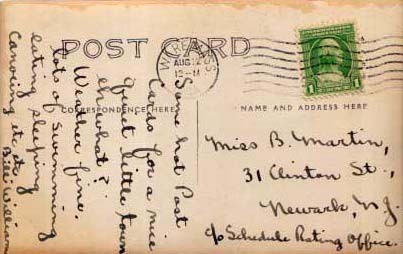 POST CARD
WILKES
AUG 12
12-M
1
CORRESPONDENCE HERE
NAME AND ADDRESS HERE
Some hot Post
Cards for a nice
quiet little town
eh what?
Weather fine.
Lots of swimming
eating sleeping
canoeing etc etc
Bill William
Miss B. Martin,
31 Clinton St.,
Newark, N.J.
c/o Schedule Rating Office.